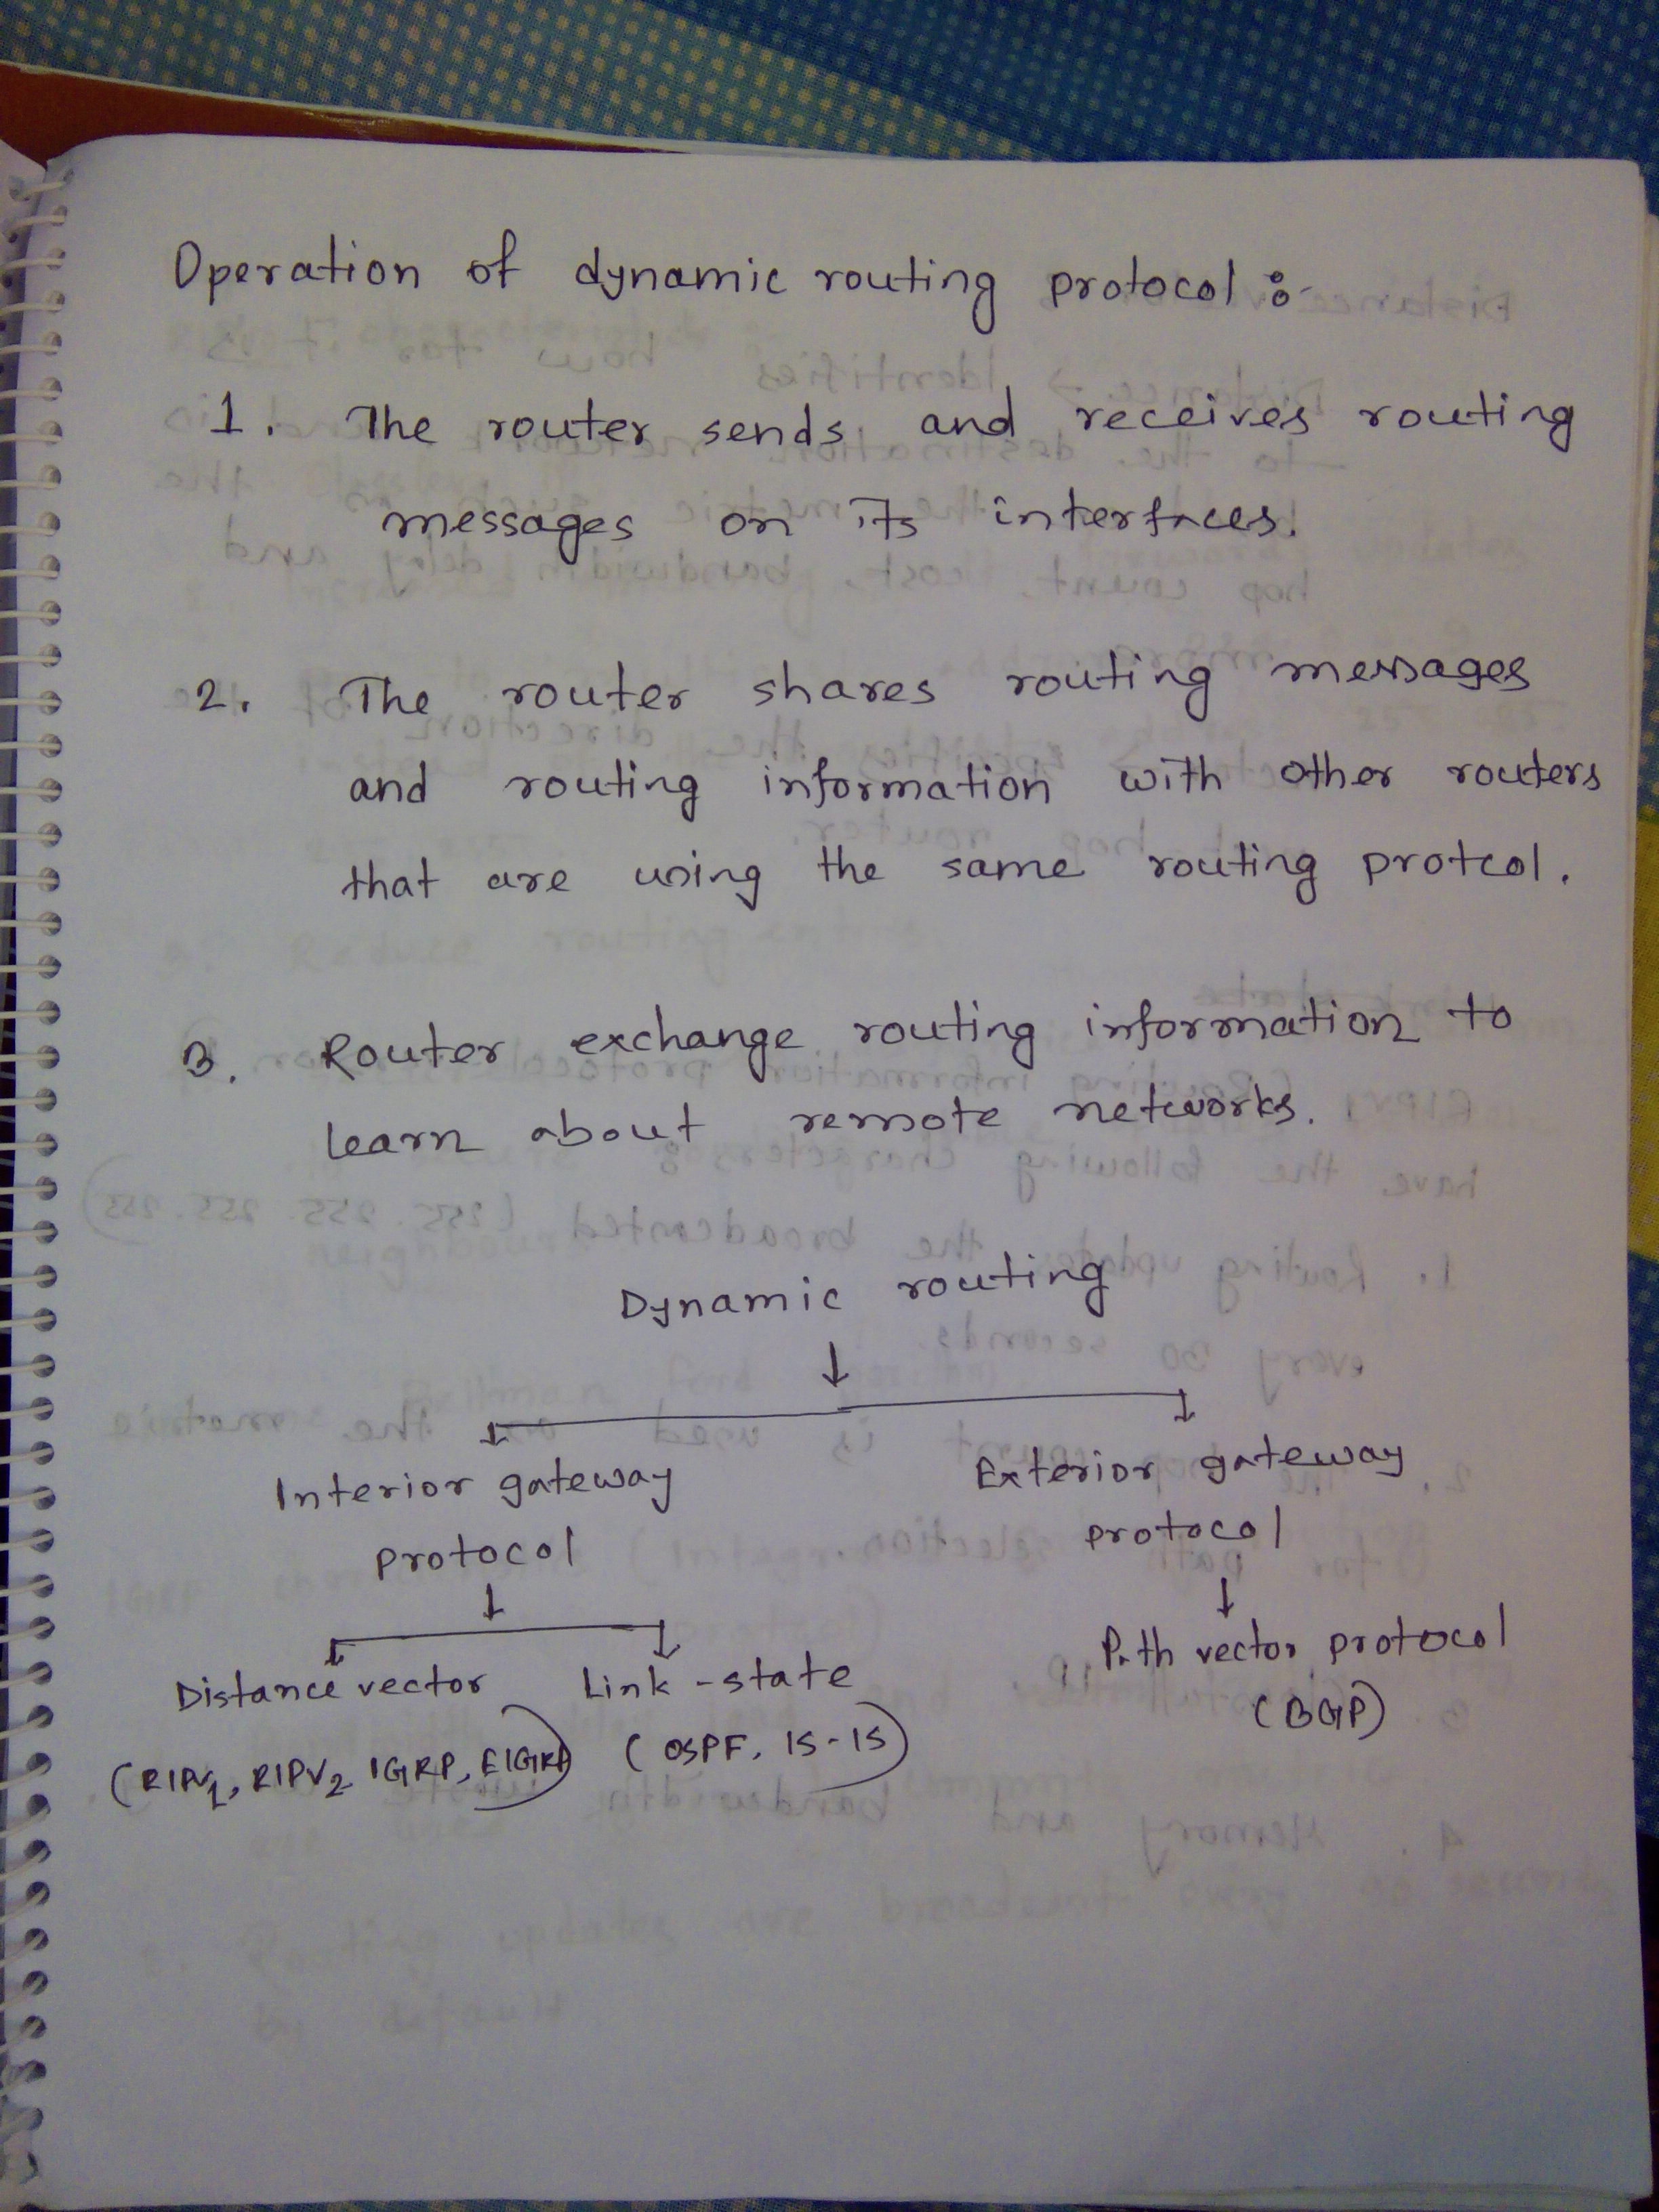 Operation of dynamic routing protocol :-
1. The router sends and receives routing
messages on its interfaces.
2. The router shares routing messages
and routing information with other routers
that are using the same routing protcol.
3. Router exchange routing information to
learn about remote networks.
Dynamic routing
Interior gateway Exterior gateway
protocol protocol
Distance vector Link-state Path vector protocol
(RIPV1, RIPV2 IGRP, EIGRP) (OSPF, IS-IS) (BGP)